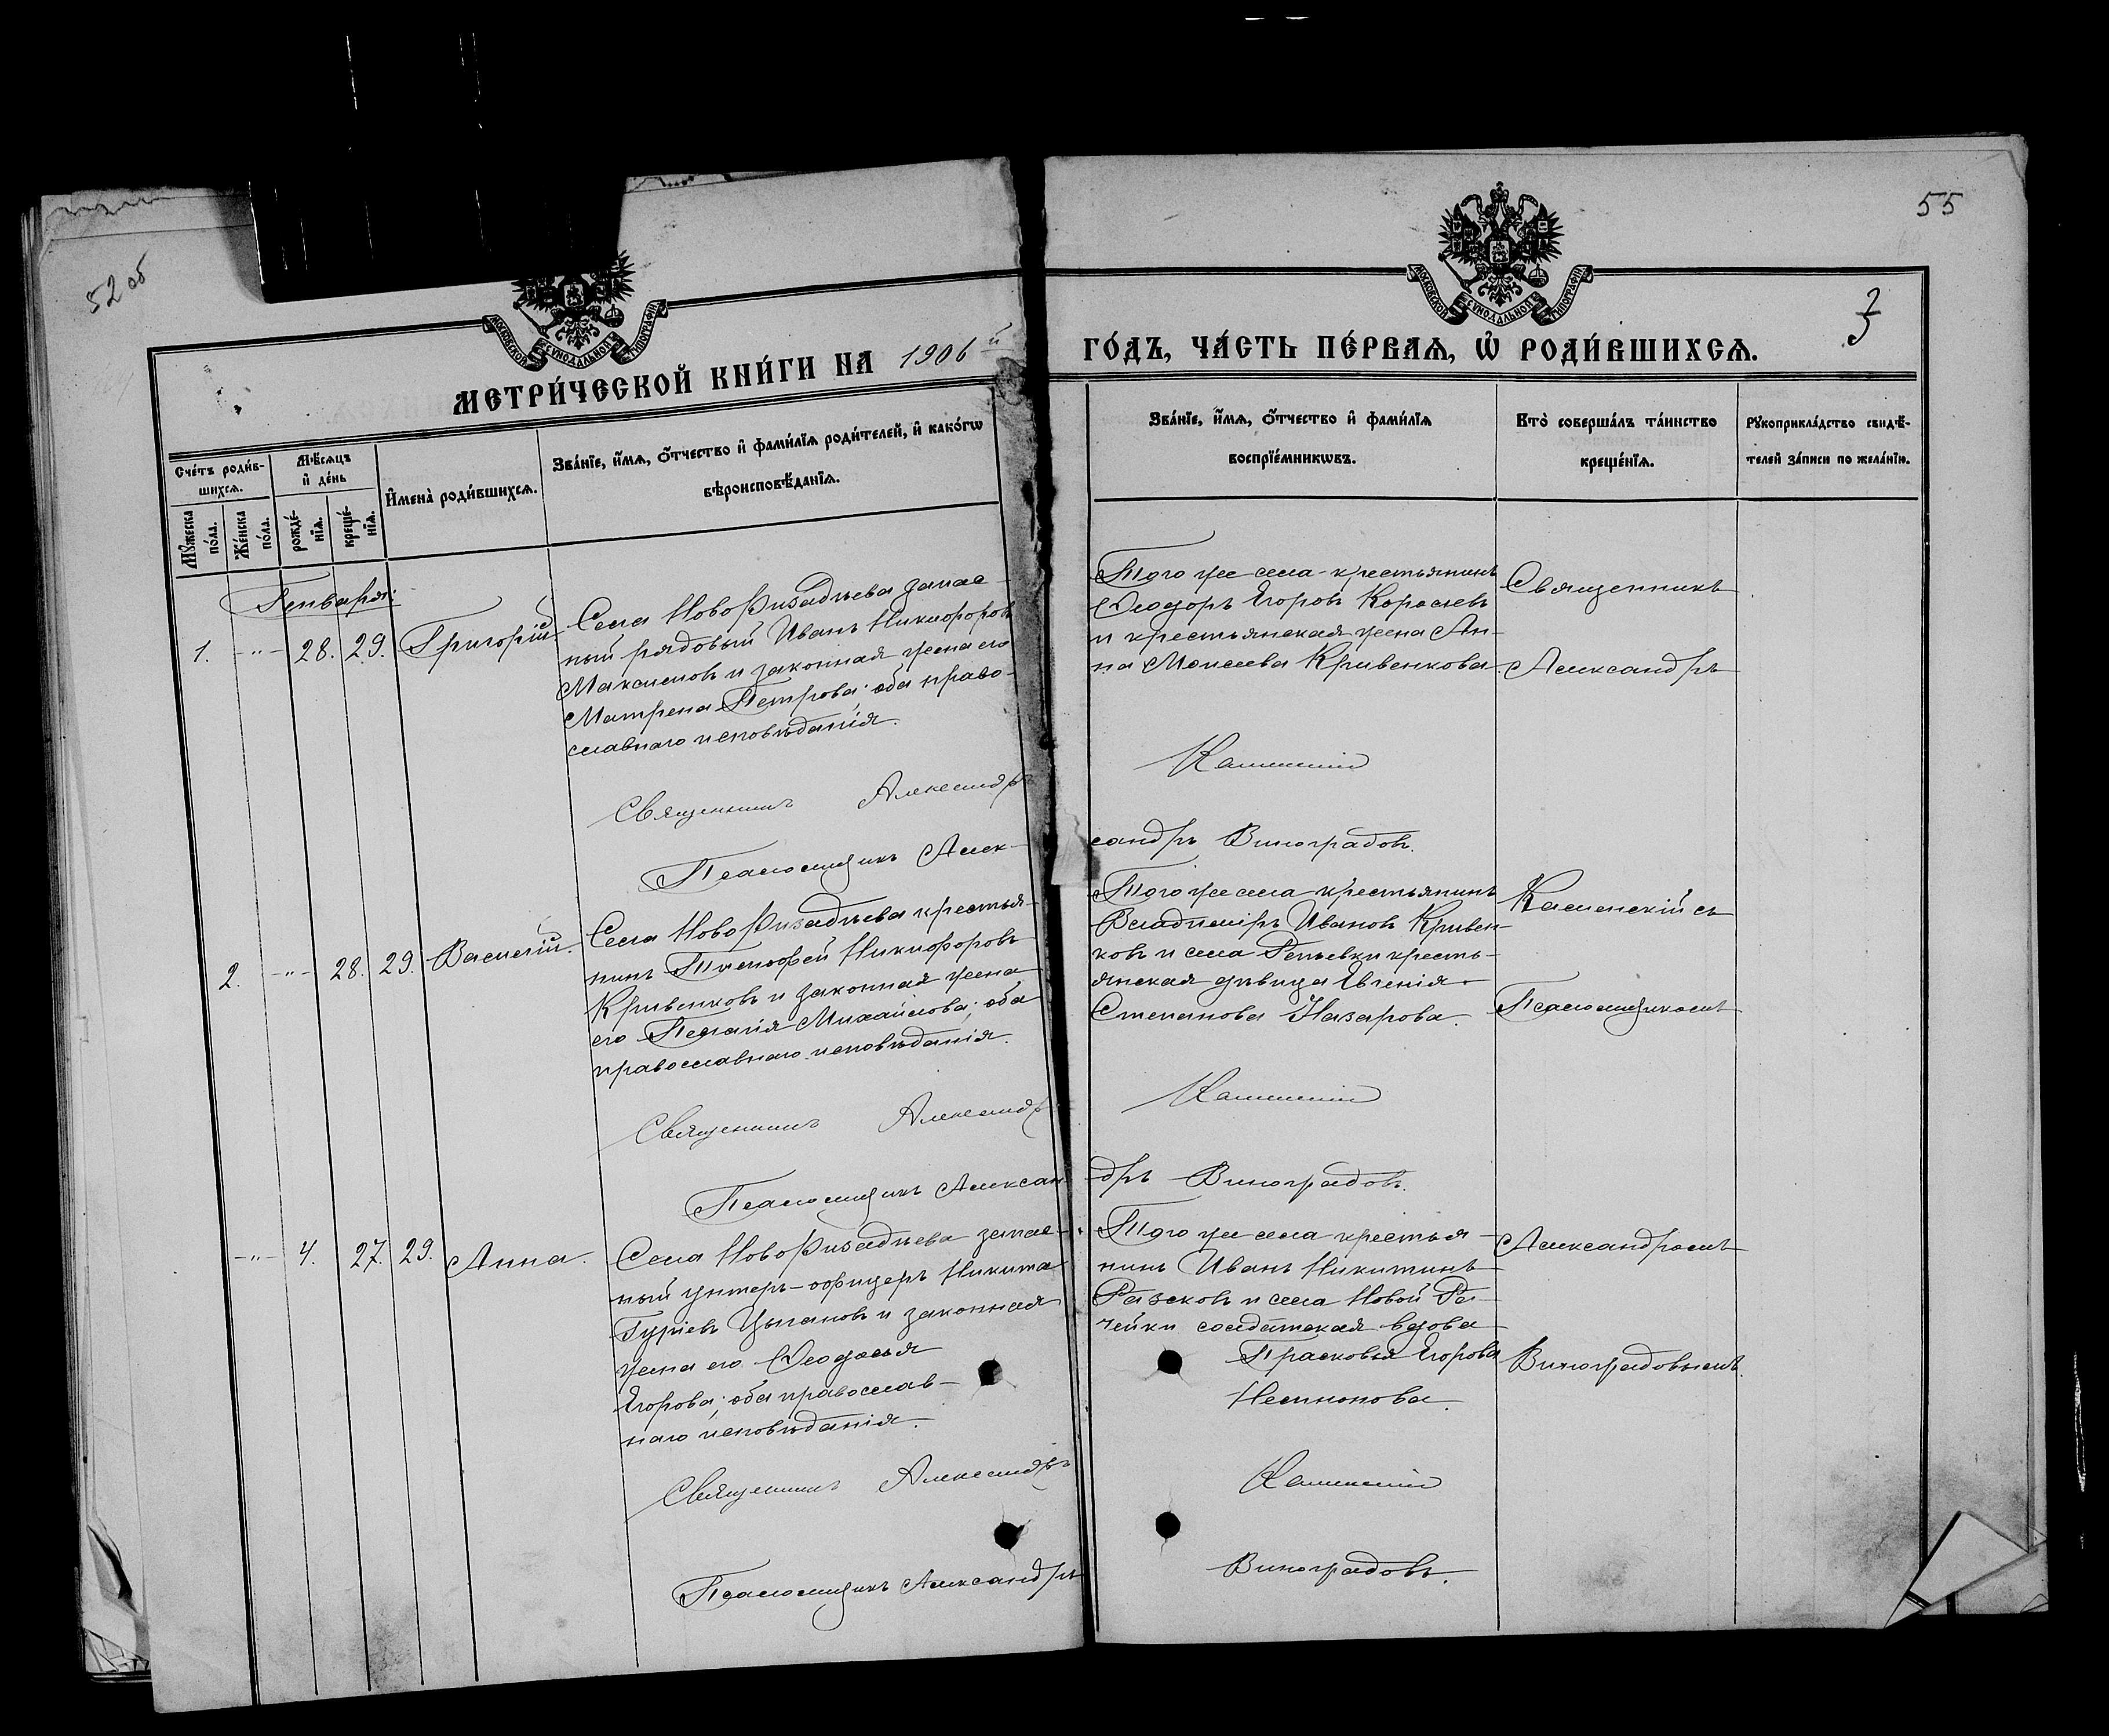 52 об
55
МОСКОВСКОЙ СѴНОДАЛЬНОЙ ТИПОГРАФІИ
МОСКОВСКОЙ СѴНОДАЛЬНОЙ ТИПОГРАФІИ
3
МЕТРИ́ЧЕСКОЙ КНИ́ГИ НА 1906 й ГО́ДЪ, ЧА́СТЬ ПЕ́РВАѦ, Ѡ҆ РОДИ́ВШИХСѦ.
Сче́тъ роди́в-
шихсѧ.
Мꙋ́жеска по́ла.
Же́нска по́ла.
Мѣ́сѧцъ
и҆ де́нь
рожде́-
нїѧ.
креще́-
нїѧ.
И҆мена̀ роди́вшихсѧ.
Зва́нїе, и҆́мѧ, ѻ҆́тчество и҆ фами́лїѧ роди́телей, и҆ како́гѡ
вѣроисповѣ́данїѧ.
Зва́нїе, и҆́мѧ, ѻ҆́тчество и҆ фами́лїѧ
воспрїе́мникѡвъ.
Кто̀ соверша́лъ та́инство
креще́нїѧ.
Рꙋкоприкла́дство свидѣ́-
телей за́писи по жела́нїю.
Генваря:
1. -"- 28. 29. Григорій
Села Новофизадѣева запас-
ный рядовый Иванъ Никифоровъ
Максимовъ и законная жена его
Матрена Петрова; оба право-
славнаго исповѣданія.
Того же села крестьянинъ
Ѳеодоръ Егоровъ
и крестьянская жена Ан-
на Моисеева Кривенкова.
Священникъ
Александръ
Священникъ Александръ Каменскій
Псаломщикъ Алек-
сандръ Виноградовъ.
2. -"- 28. 29. Василій.
Села Новофизадѣева крестья-
нинъ Тимофей Никифоровъ
Кривенковъ и законная жена
его Пелагія Михайлова; оба
православнаго исповѣданія.
Того же села крестьянинъ
Владиміръ Ивановъ Кривен-
ковъ и села Репьевки кресть-
янская дѣвица Евгенія
Степанова Назарова.
Каменскій съ
Псаломщикомъ
Священникъ Александръ Каменскій
Псаломщикъ Алексан-
дръ Виноградовъ.
-"- 4. 27. 29. Анна.
Села Новофизадѣева запас-
ный унтеръ-офицеръ Никита
Гуріевъ Цыгановъ и законная
жена его Ѳеодосья
Егорова; оба православ-
наго исповѣданія.
Того же села крестья-
нинъ Иванъ Никитинъ
и села Новой Ре-
чейки солдатская вдова
Прасковья Егорова
Александромъ
Виноградовымъ.
Священникъ Александръ Каменскій
Псаломщикъ Александръ Виноградовъ.